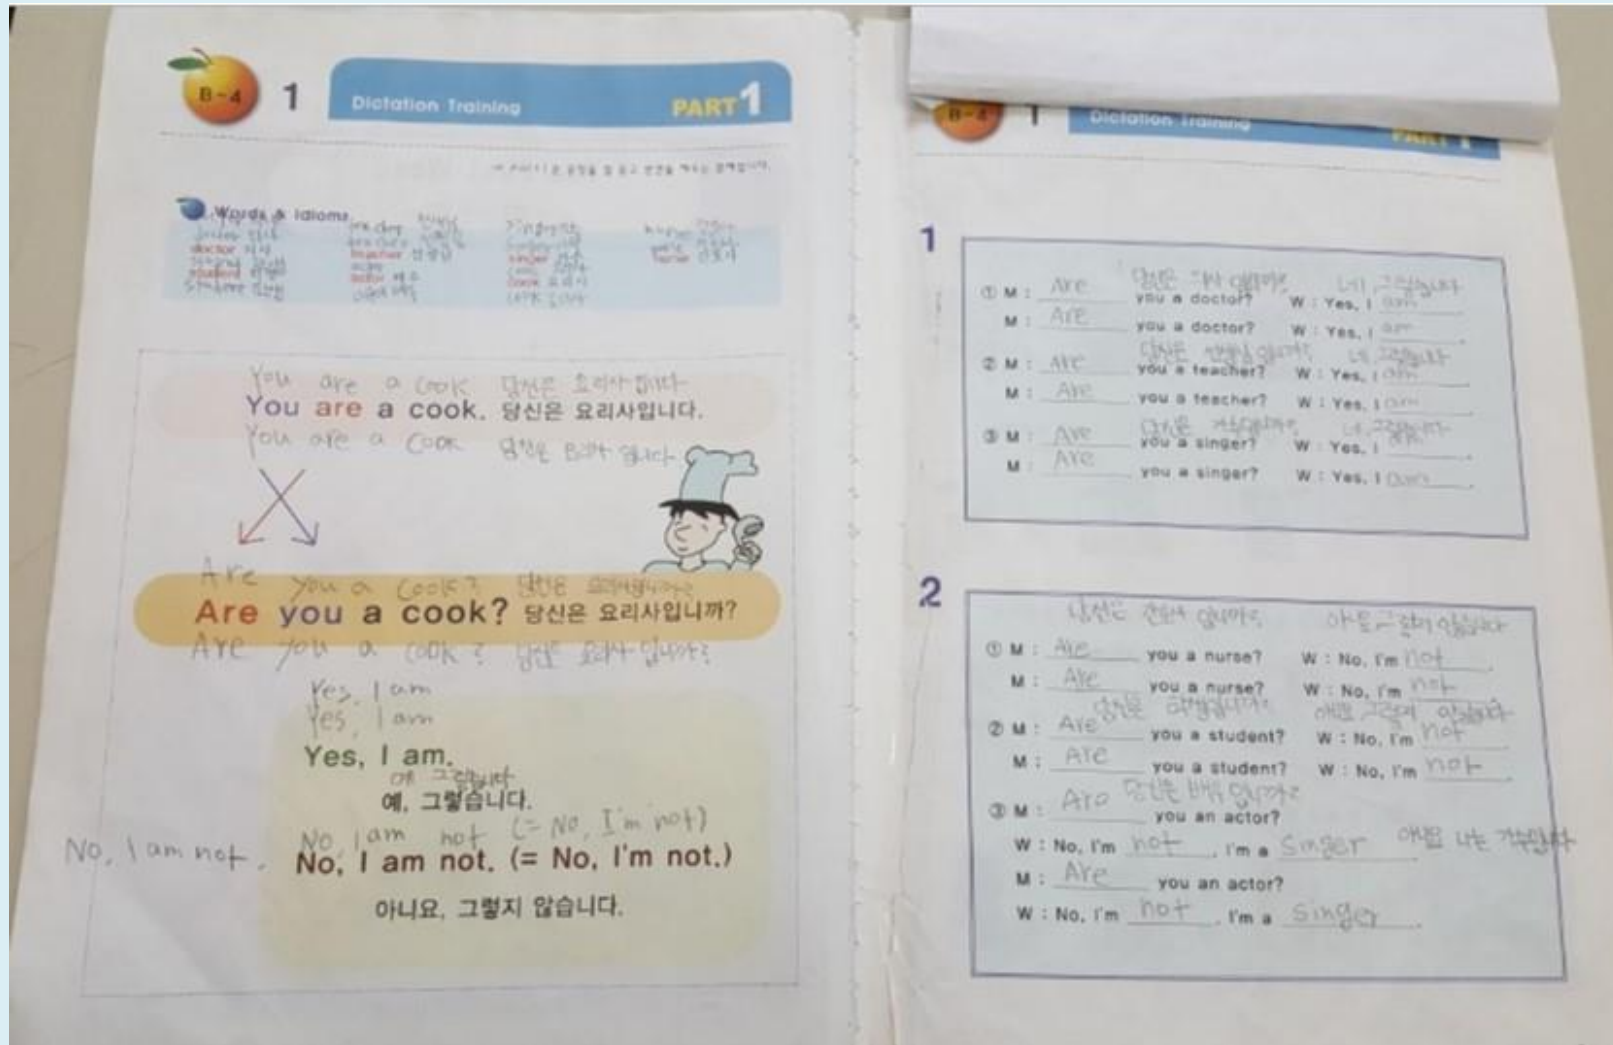 B-4 1 Dictation Training PART 1
Words & Idioms
doctor 의사 teacher 선생님 singer 가수 nurse 간호사
student 학생 actor 배우 cook 요리사
You are a cook 당신은 요리사 입니다
You are a cook. 당신은 요리사입니다.
You are a cook 당신은 요리사 입니다
Are you a cook? 당신은 요리사입니까?
Are you a cook? 당신은 요리사입니까?
Are you a cook? 당신은 요리사 입니까?
Yes, I am
Yes, I am
Yes, I am.
예 그렇습니다
예, 그렇습니다.
No, I am not (= No, I'm not)
No, I am not. No, I am not. (= No, I'm not.)
아니요, 그렇지 않습니다.
B-4 1 Dictation Training PART 1
1
당신은 의사 입니까? 네, 그렇습니다
① M : Are you a doctor? W : Yes, I am.
M : Are you a doctor? W : Yes, I am.
당신은 선생님 입니까? 네, 그렇습니다
② M : Are you a teacher? W : Yes, I am.
M : Are you a teacher? W : Yes, I am.
당신은 가수입니까? 네, 그렇습니다
③ M : Are you a singer? W : Yes, I
M : Are you a singer? W : Yes, I am.
2
당신은 간호사 입니까? 아니요 그렇지 않습니다
① M : Are you a nurse? W : No, I'm not.
M : Are you a nurse? W : No, I'm not.
당신은 학생입니까? 아니요 그렇지 않습니다
② M : Are you a student? W : No, I'm not.
M : Are you a student? W : No, I'm not.
당신은 배우 입니까?
③ M : Are you an actor?
W : No, I'm not. I'm a singer. 아니요 나는 가수입니다
M : Are you an actor?
W : No, I'm not. I'm a singer.